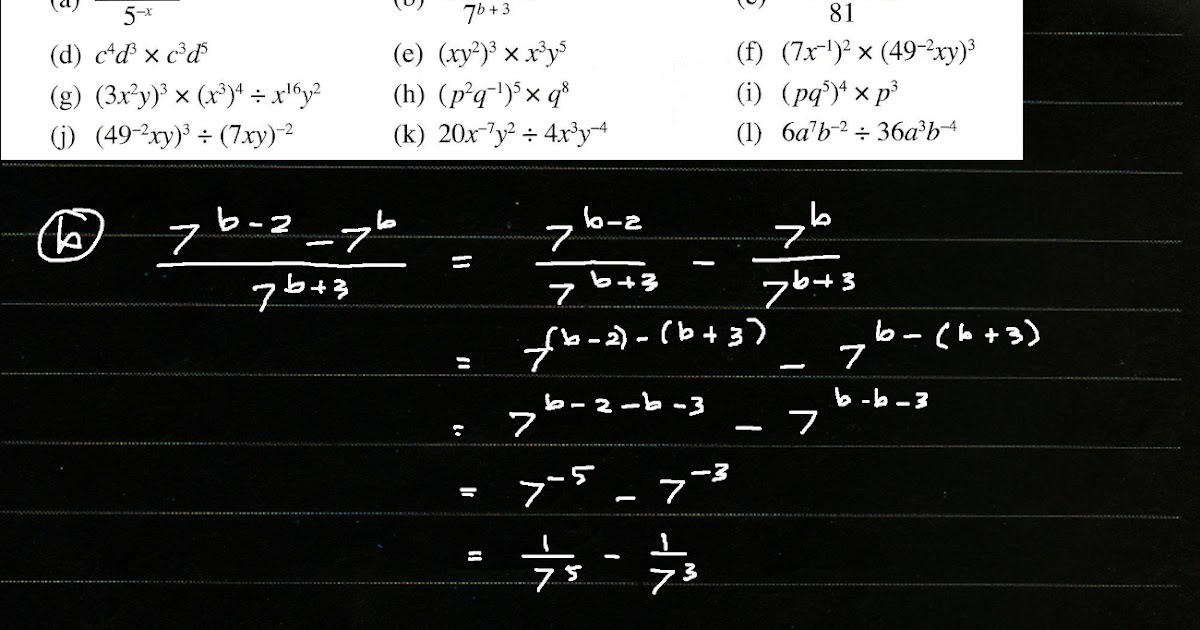 (a) 5⁻ˣ (b) 7ᵇ⁺³ (c) 81
(d) c⁴d³ × c³d⁵ (e) (xy²)³ × x³y⁵ (f) (7x⁻¹)² × (49⁻²xy)³
(g) (3x²y)³ × (x³)⁴ ÷ x¹⁶y² (h) (p²q⁻¹)⁵ × q⁸ (i) (pq⁵)⁴ × p³
(j) (49⁻²xy)³ ÷ (7xy)⁻² (k) 20x⁻⁷y² ÷ 4x³y⁻⁴ (l) 6a⁷b⁻² ÷ 36a³b⁻⁴
(b) (7^(b-2) - 7^b) / 7^(b+3) = 7^(b-2) / 7^(b+3) - 7^b / 7^(b+3)
= 7^((b-2)-(b+3)) - 7^(b-(b+3))
= 7^(b-2-b-3) - 7^(b-b-3)
= 7⁻⁵ - 7⁻³
= 1/7⁵ - 1/7³